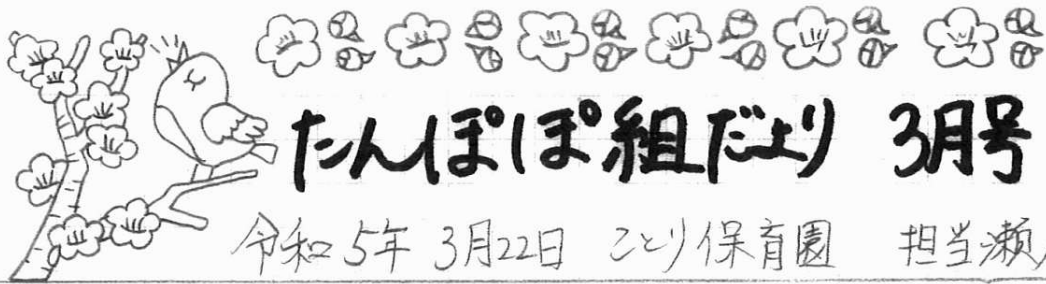 たんぽぽ組だより 3月号
令和5年 3月22日 ことり保育園 担当瀬